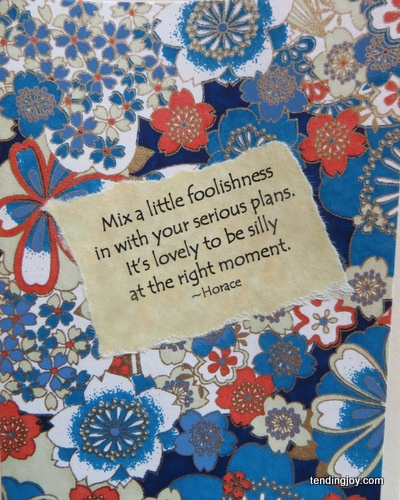 Mix a little foolishness
in with your serious plans.
It's lovely to be silly
at the right moment.
~Horace
tendingjoy.com